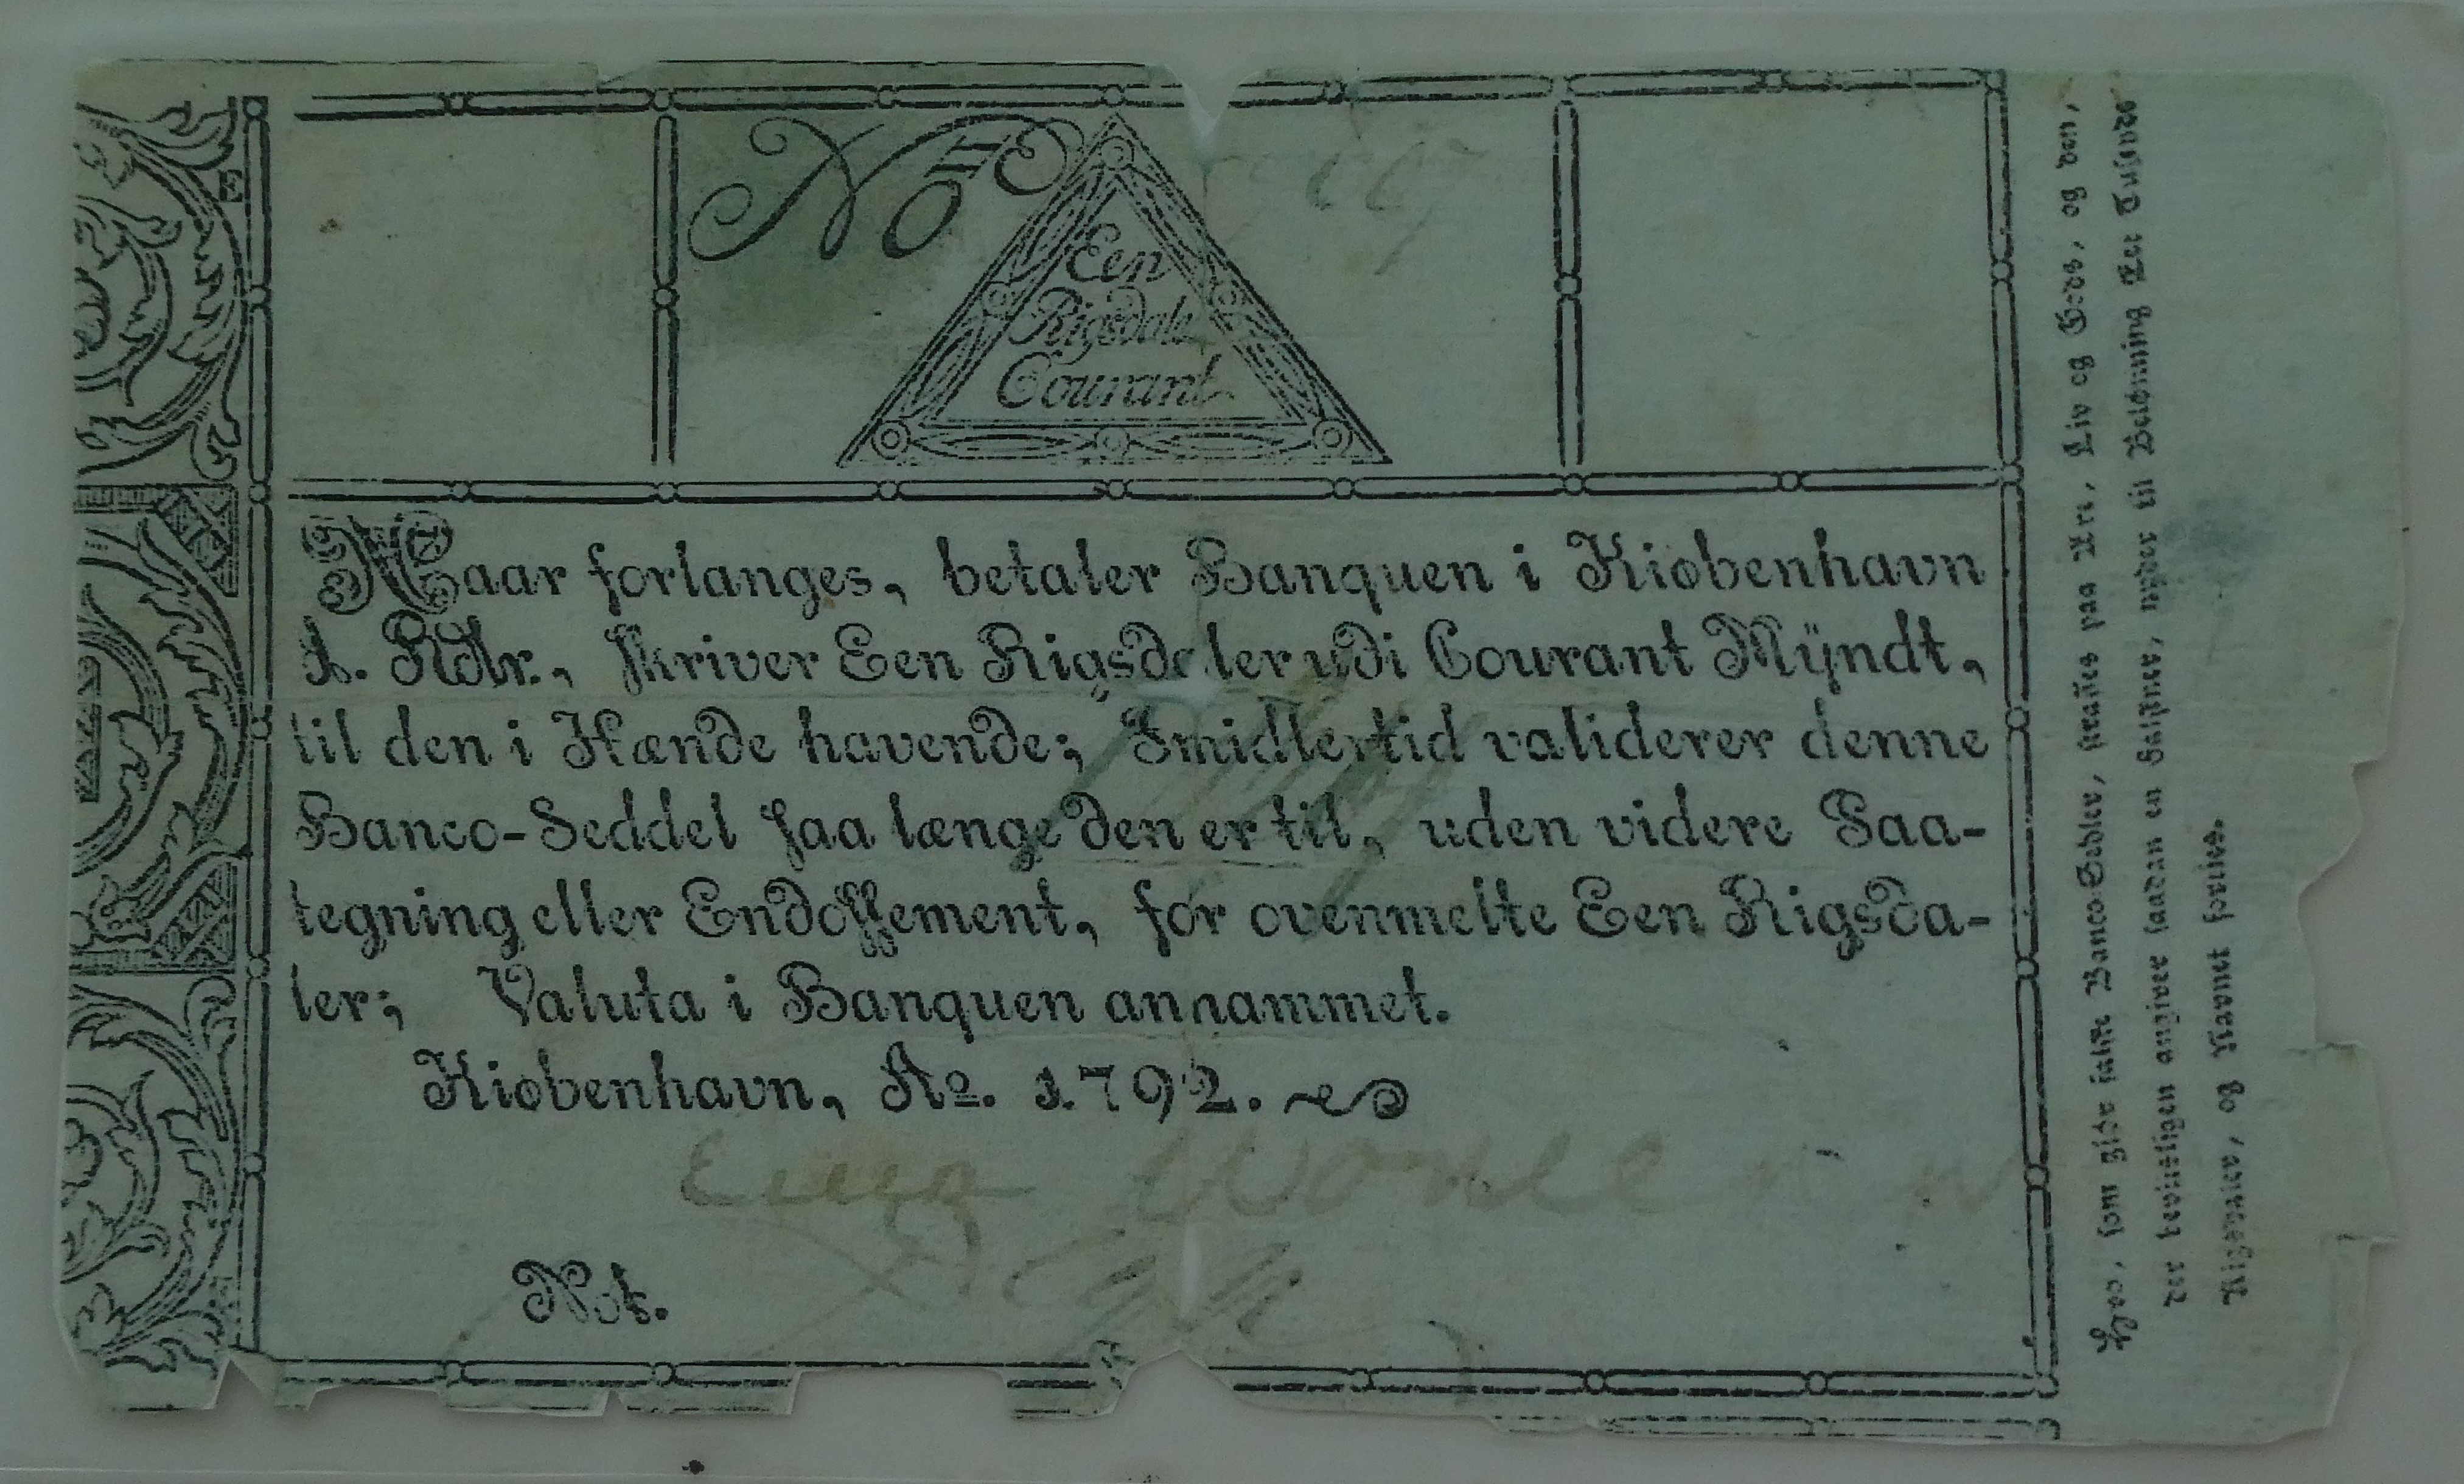 No
Een
Rigsdaler
Courant
Naar forlanges, betaler Banquen i Kiøbenhavn
1. Rdlr., skriver Een Rigsdaler udi Courant Mÿndt,
til den i Hænde havende; Imidlertid validerer denne
Banco-Seddel saa længe den er til, uden videre Paa-
tegning eller Endossement, for ovenmelte Een Rigsda-
ler; Valuta i Banquen annammet.
Kiøbenhavn, Ao. 1792.
Not.
Hvo, som giør falske Banco-Sedler, straffes paa Ære, Liv og Gods, og den,
der beviisligen angiver saadan en Falskner, nyder til Belønning Tee Tusinde
Rigsdaler, og Navnet forties.